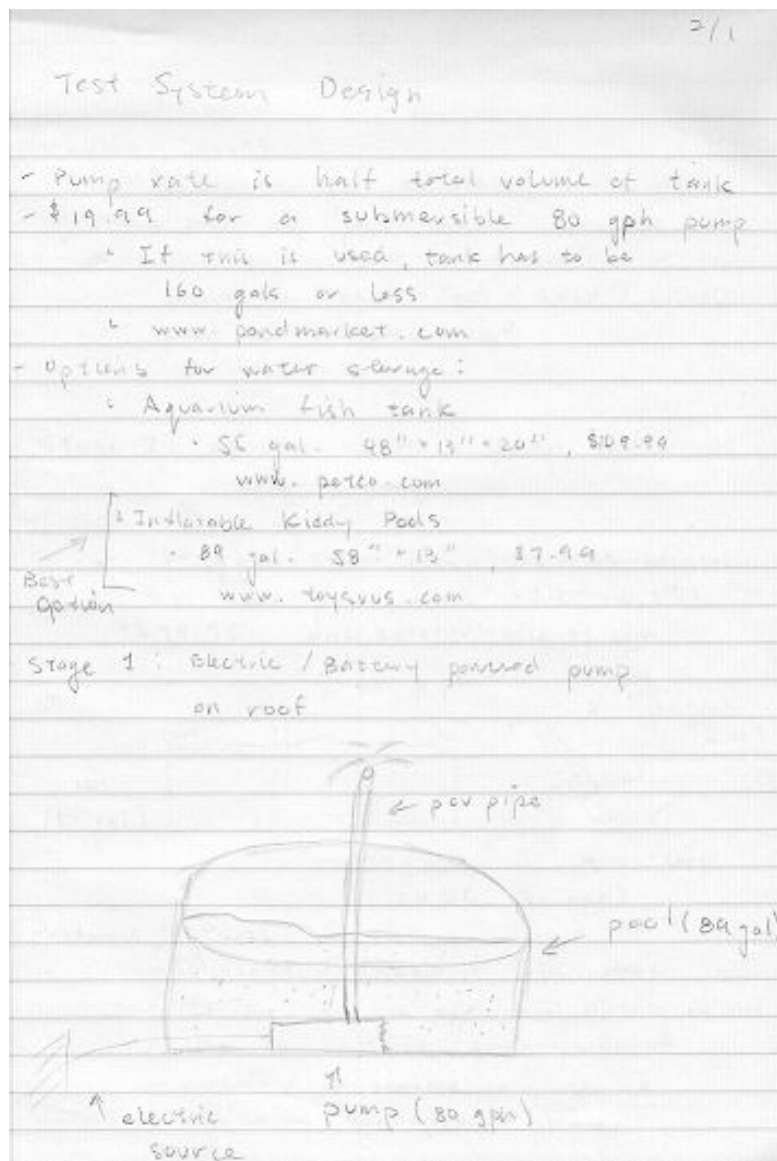 2/1
Test System Design
- Pump rate is half total volume of tank
- $19.99 for a submersible 80 gph pump
If this is used, tank has to be
160 gals or less
www.pondmarket.com
- Options for water storage:
Aquarium fish tank
• 55 gal. 48" × 13" × 20", $109.99
www.petco.com
Inflatable Kiddy Pools
• 89 gal. 58" × 13", $7.99
www.toysrus.com
Best
Option
Stage 1: Electric / Battery powered pump
on roof
← pvc pipe
← pool (89 gal)
↑ electric
source
↑
pump (80 gph)